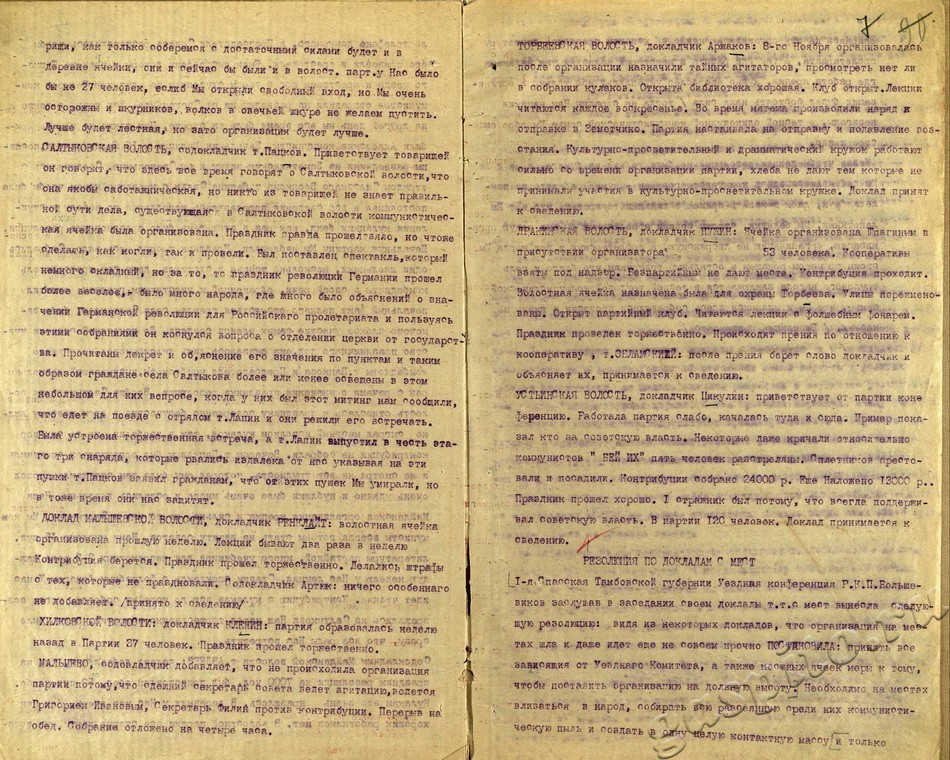 рищи, как только соберемся с достаточными силами будет и в
деревне ячейки, они и сейчас бы были и в волост. парт.у Нас было
бы не 27 человек, еслиб Мы открыли свободный вход, но Мы очень
осторожны и шкурников, волков в овечьей шкуре не желаем пустить.
Лучше будет лестная, но зато организация будет лучше.
САЛТЫКОВСКАЯ ВОЛОСТЬ, содокладчик т.Пацков. Приветствует товарищей
он говорит, что здесь все время говорят о Салтыковской волости,что
она якобы саботажническая, но никто из товарищей не знает правиль-
ной сути дела, существующая в Салтыковской волости коммунистичес-
кая ячейка была организована. Праздник правда прошел вяло, но чтоже
сделать, как могли, так и провели. Был поставлен спектакль,который
немного складный, но за то, то праздник революции Германии прошел
более веселее,- было много народа, где много было объяснений о зна-
чении Германской революции для Российскаго пролетариата и пользуясь
этими собраниями он коснулся вопроса о отделении церкви от государст-
ва. Прочитаны декрет и об,яснение его значения по пунктам и таким
образом граждане села Салтыкова более или менее осведены в этом
небольшом для них вопросе, когда у них был этот митинг нам сообщили,
что едет на поезде с отрялом т.Лапин и они решили его встречать.
Была устроена торжественная встреча, а т.Лапин выпустил в честь эта-
го три снаряда, которые рвались издалека от нас указывая на эти
пушки т.Пацков заявил гражданам, что от этих пушек Мы умирали, но
в тоже время они нас защитят.
ДОКЛАД МАЛЫШЕВСКОЙ ВОЛОСТИ, докладчик РЕНКЛАЙТ: волостная ячейка
организована прошлую неделю. Лекции бывают два раза в неделю
Контрибуция берется. Праздник прошел торжественно. Делались штрафы
с тех, которые не праздновали. Содокладчик Артюк: ничего особеннаго
не добавляет. /принято к сведению/
ХИЛКОВСКОЙ ВОЛОСТИ: докладчик КЛЕНИН: партия образовалась неделю
назад в Партии 37 человек. Праздник прошел торжественно.
МАЛЫШЕВО, содокладчик добавляет, что не происходила организация
партии потому,что сдешний секретарь совета ведет агитацию,ведется
Григорием Ивановым, Секретарь Филий против контрибуции. Перерыв на
обед. Собрание отложено на четыре часа.
7
ТОРБЕЕВСКАЯ ВОЛОСТЬ, докладчик Аржаков: 8-го Ноября организовалась
после организации назначили тайных агитаторов, просмотреть нет ли
в собрании кулаков. Открыта библиотека хорошая. Клуб открыт.Лекции
читаются каждое воскресенье. Во время мятежа производили наряд к
отправке в Земетчино. Партия настаивала на отправку и подавление воз-
стания. Культурно-просветительный и драматический кружок работают
сильно со времени организации партии, хлеба не дают тем которые не
принимали участия в культурно-просветительном кружке. Доклад принят
к сведению.
ДРАКИНСКАЯ ВОЛОСТЬ, докладчик ПУЗИН: Ячейка организована Шпагиным в
присутствии организатора 53 человека. Кооперативы
взяты под надзор. Безпартийным не дают места. Контрибуция проходит.
Волостная ячейка назначена была для охраны Торбеева. Улицы переимено-
ваны. Открыт партийный клуб. Читаются лекции с волшебным фонарем.
Праздник проведен торжественно. Происходят прения по отношению к
кооперативу , т.ЗЕЛАМСКИЙ: после прения берет слово докладчик и
объясняет их, принимается к сведению.
УСТЬИНСКАЯ ВОЛОСТЬ, докладчик Цикулин: приветствует от партии коне
ференцию. Работала партия слабо, качалась туда и сюда. Пример пока-
зал кто за советскую власть. Некоторые даже кричали относительно
коммунистов " БЕЙ ИХ" пять человек разстреляны. Сплетников аресто-
вали и посадили. Контрибуции собрано 24000 р. Еще Наложено 13000 р..
Праздник прошел хорошо. 1 стражник был потому, что всегда поддержи-
вал советскую власть. В партии 120 человек. Доклад принимается к
сведению.
РЕЗОЛЮЦИЯ ПО ДОКЛАДАМ С МЕСТ
I-я Спасская Тамбовской губернии Уездная конференция Р.К.П.Больше-
виков заслушав в заседании своем доклады т.т.с мест вынесла следую-
щую резолюцию: видя из некоторых докладов, что организация на мес-
тах шла и даже идет еще не совсем прочно ПОСТАНОВИЛА: принять все
зависящия от Уезднаго Комитета, а также местных ячеек меры к тому,
чтобы поставить организацию на должную высоту. Необходимо на местах
вливаться в народ, собирать всю разсеянную среди них коммунисти-
ческую пыль и создать в одну целую контактную массу и только